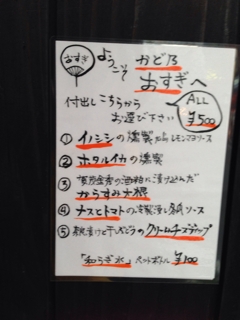 おすぎ
ようこそ かど乃
おすぎへ
付出しこちらから
お選び下さい
ALL
¥500
① イノシシの燻製 レモンマヨソース
② ホタルイカの燻製
③ の酒粕に漬け込んだ
からすみ大根
④ ナスとトマトの 浸し ソース
⑤ 漬けと干しぶどうのクリームチーズディップ
「和らぎ水」ペットボトル ¥100